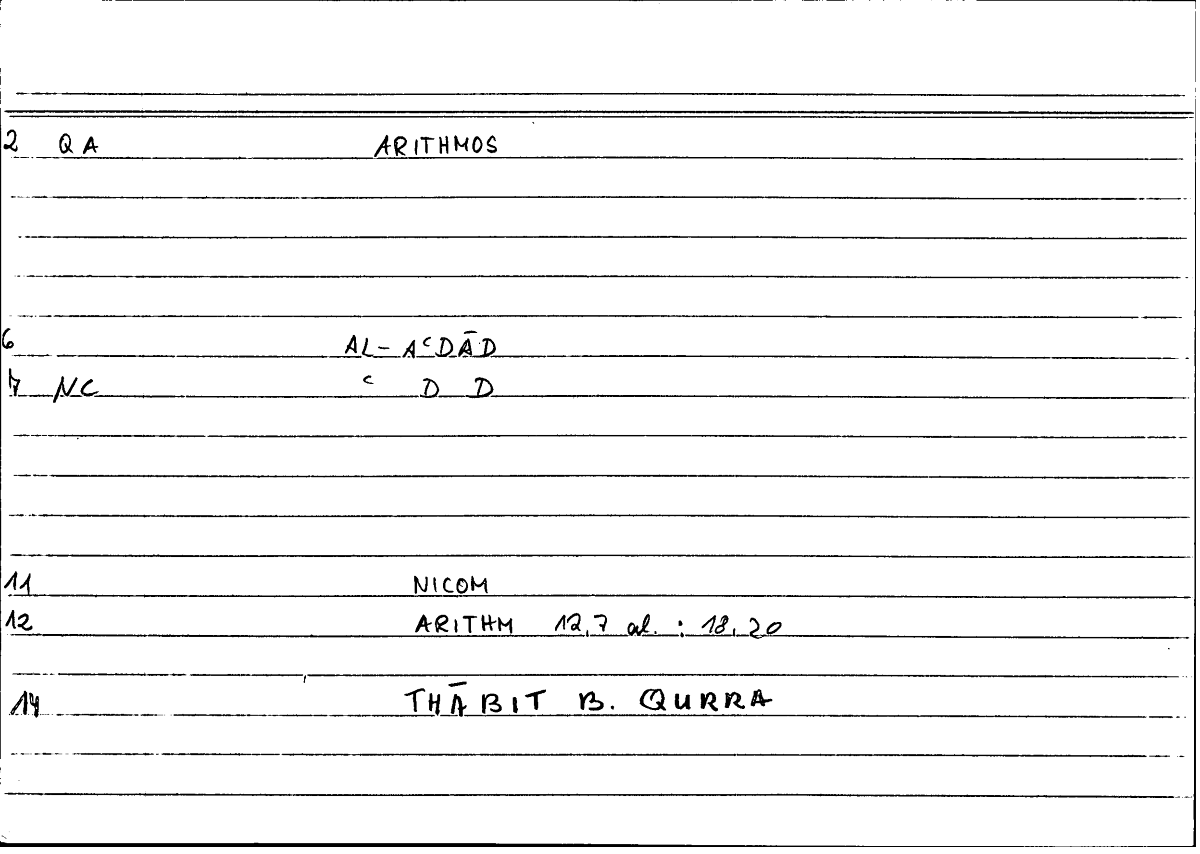 2 QA ARITHMOS
6 AL-AʿDĀD
7 NC ʿ D D
11 NICOM
12 ARITHM 12,7 al. : 18,20
14 THĀBIT B. QURRA